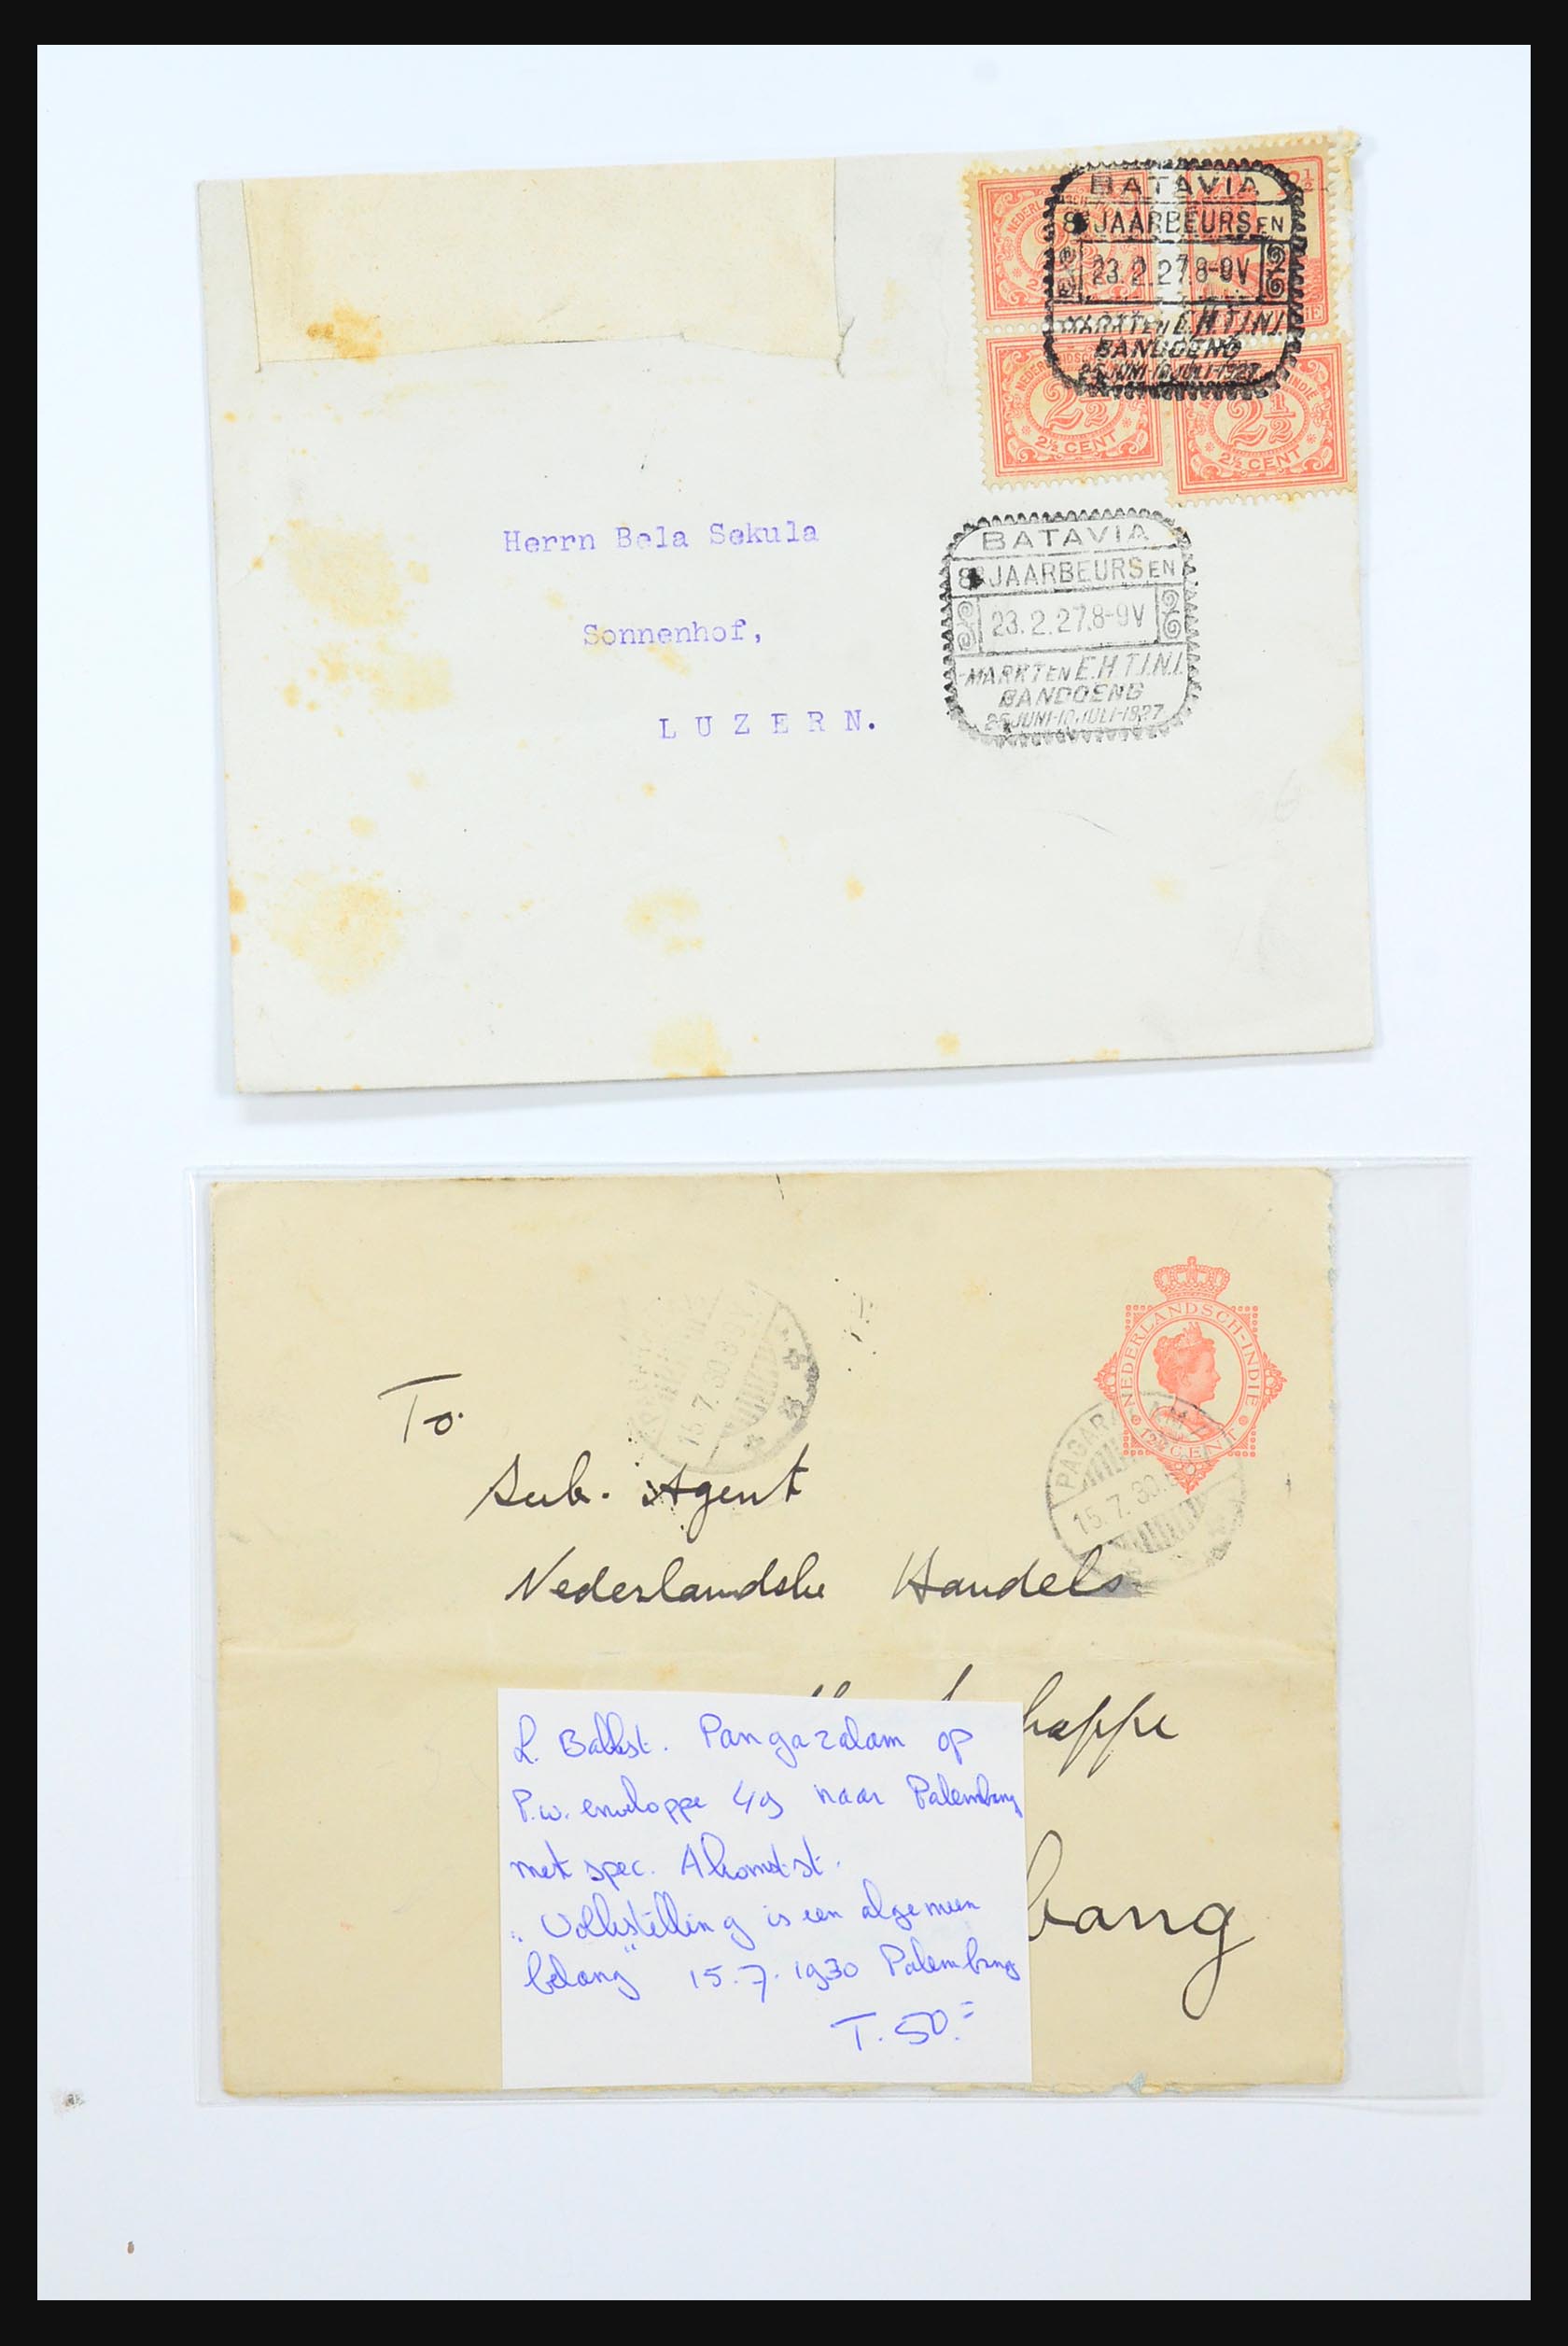 BATAVIA
JAARBEURS EN
23.2.27.8-9V
MARKTEN E.H.T.I.N.I.
BANDOENG
25 JUNI-10 JULI-1927
2½ CENT
2½ CENT
Herrn Bela Sekula
Sonnenhof,
LUZERN.
BATAVIA
JAARBEURS EN
23.2.27.8-9V
MARKTEN E.H.T.I.N.I.
BANDOENG
25 JUNI-10 JULI-1927
NEDERLANDSCH-INDIE
12½ CENT
PAGAR
15.7.30
15.7.30
To
Sub. Agent
Nederlandshe Handels
happe
bang
L. Balkst. Pangazalam op
P.w. enveloppe 49 naar Palembang
met spec. Akomstst.
„Volkstelling is een algemeen
belang" 15.7.1930 Palembang
T. 50.=